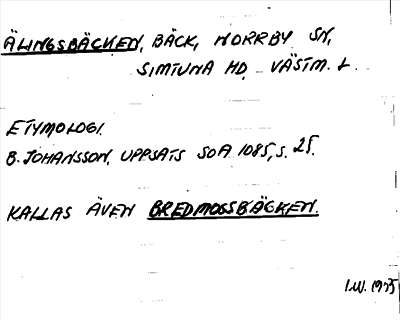 ÄLINGSBÄCKEN, BÄCK, NORRBY SN,
SIMTUNA HD VÄSTM. L.
ETYMOLOGI.
B. JOHANSSON, UPPSATS SOA 1085, S. 25.
KALLAS ÄVEN BREDMOSSBÄCKEN.
I.W. 1975